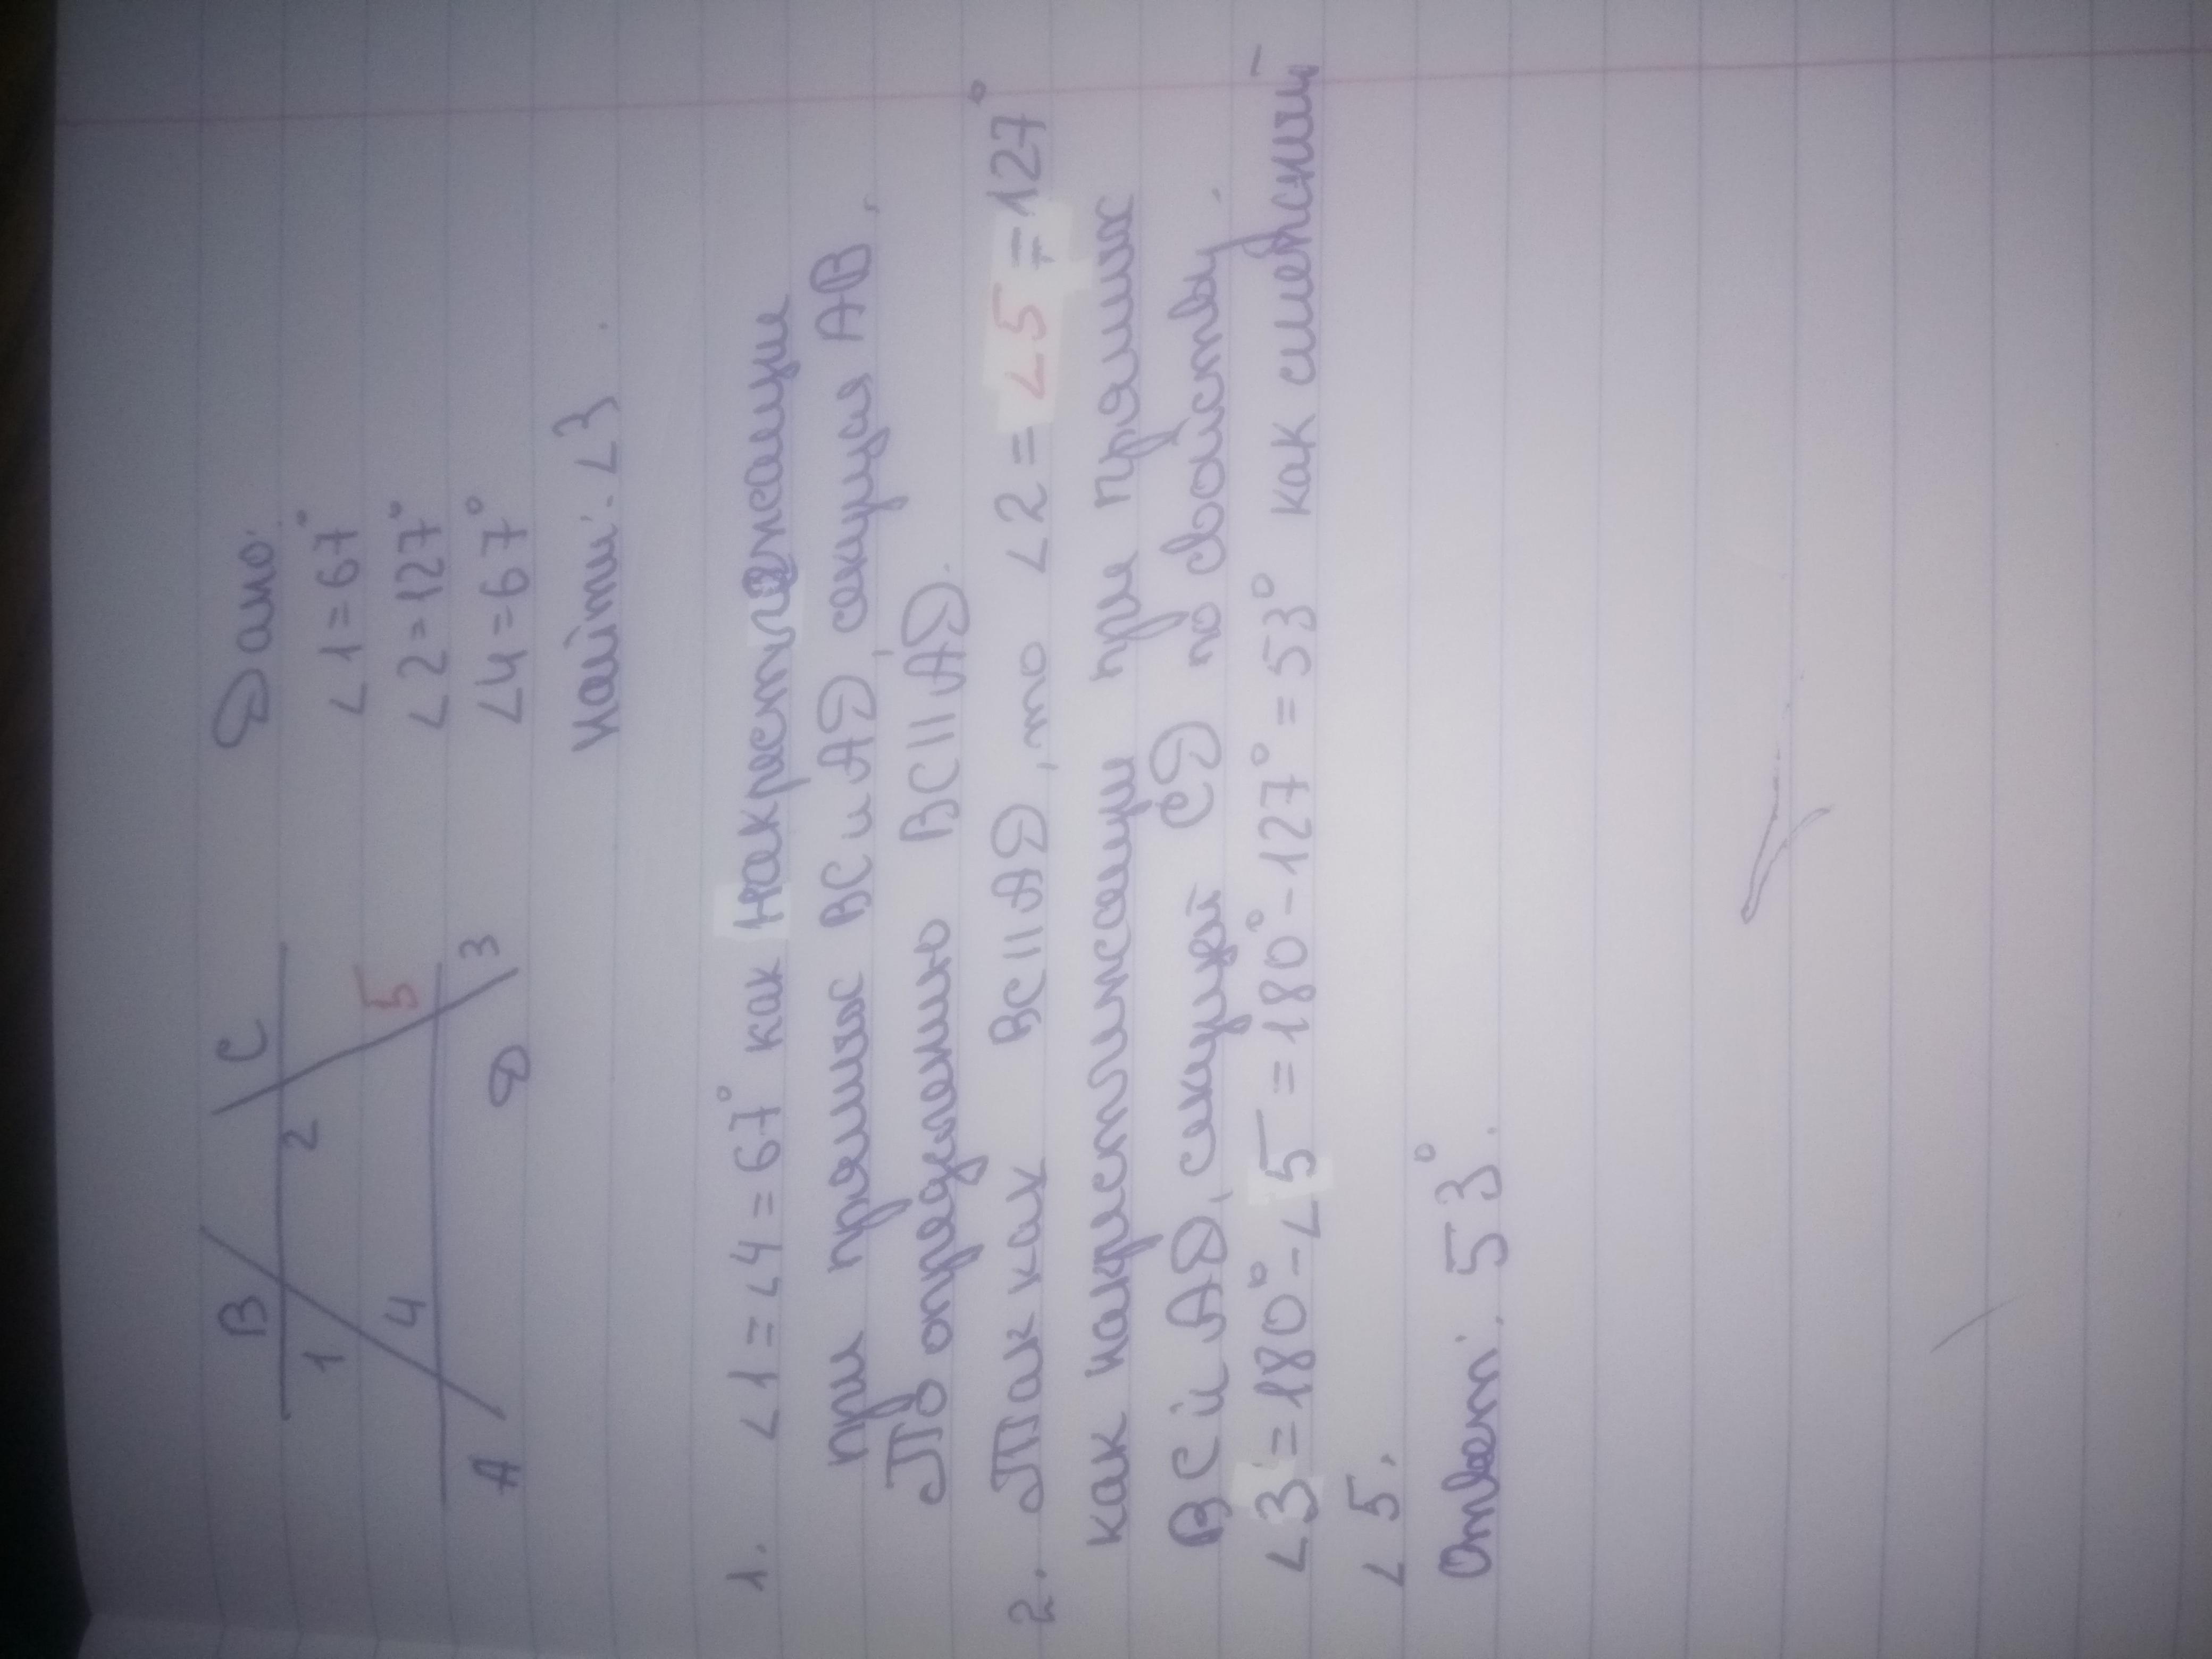 B C
1 2
4 5
A D 3
Дано:
∠1=67°
∠2=127°
∠4=67°
Найти: ∠3.
1. ∠1=∠4=67° как накрестлежащие
при прямых BC и AD, секущая AB.
По определению BC||AD.
2. Так как BC||AD, то ∠2=∠5=127°
как накрестлежащи при прямых
BC и AD, секущей CD по свойству.
∠3=180°-∠5=180°-127°=53° как смежный-
∠5.
Ответ: 53°.